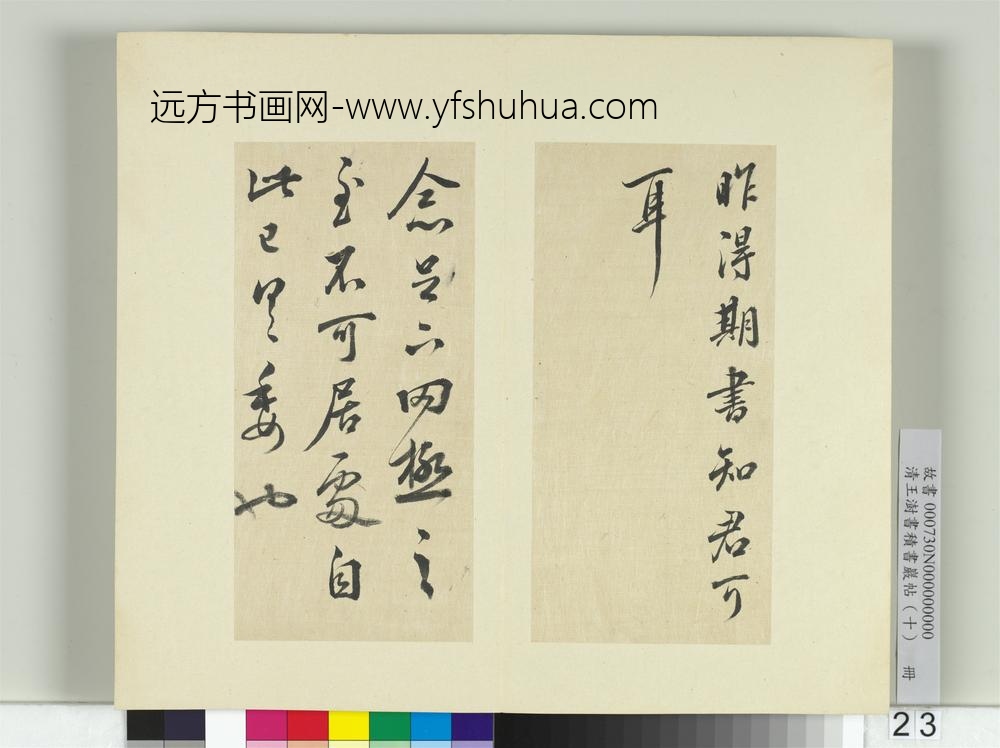 远方书画网-www.yfshuhua.com
昨得期書知君可
耳
念足下罔極之
至不可居處自
此已畢委也
故書 000730N000000000
清王澍書積書巖帖（十） 冊
23